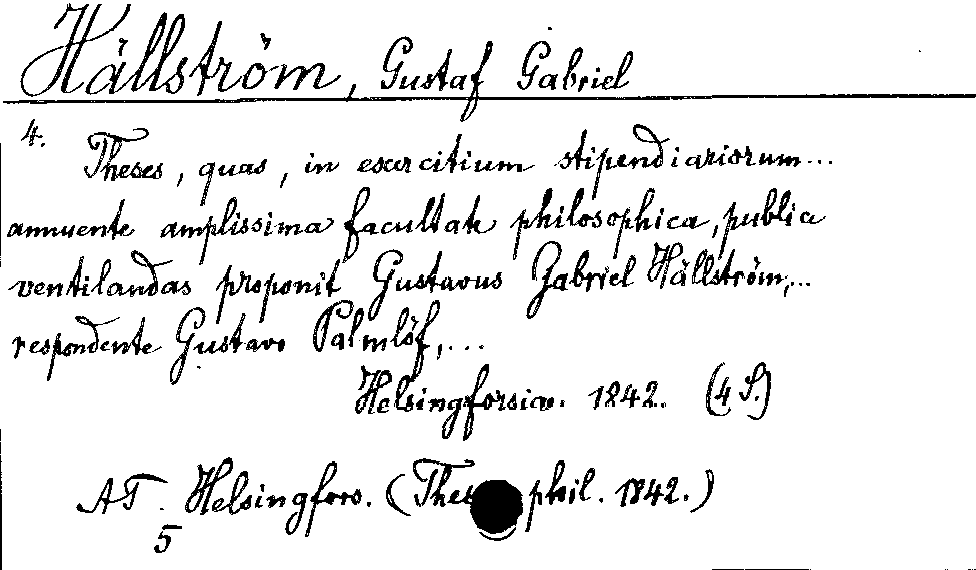 Hällström, Gustaf Gabriel
4.
Theses, quas, in exercitium stipendiariorum...
annuente amplissima facultate philosophica, publice
ventilandas proponit Gustavus Gabriel Hällström,...
respondente Gustavo Palmlöf,...
Helsingforsiae. 1842. (4 S.)
AT. Helsingfors. (Thes phil. 1842.)
5